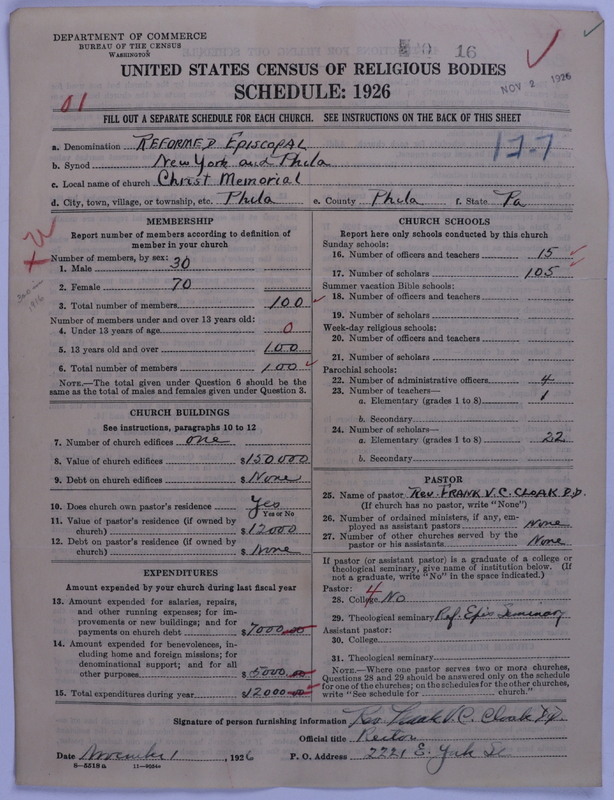 DEPARTMENT OF COMMERCE
BUREAU OF THE CENSUS
WASHINGTON
16
UNITED STATES CENSUS OF RELIGIOUS BODIES
SCHEDULE: 1926
NOV 2 1926
01
FILL OUT A SEPARATE SCHEDULE FOR EACH CHURCH. SEE INSTRUCTIONS ON THE BACK OF THIS SHEET
a. Denomination REFORMED EPISCOPAL
17-7
b. Synod New York and Phila
c. Local name of church Christ Memorial
d. City, town, village, or township, etc. Phila e. County Phila f. State Pa
MEMBERSHIP
Report number of members according to definition of
member in your church
Number of members, by sex:
1. Male 30
2. Female 70
3. Total number of members 100
Number of members under and over 13 years old:
4. Under 13 years of age 0
5. 13 years old and over 100
6. Total number of members 100
NOTE.—The total given under Question 6 should be the
same as the total of males and females given under Question 3.
CHURCH BUILDINGS
See instructions, paragraphs 10 to 12
7. Number of church edifices one
8. Value of church edifices $150000
9. Debt on church edifices $None
10. Does church own pastor's residence Yes
Yes or No
11. Value of pastor's residence (if owned by
church) $12000
12. Debt on pastor's residence (if owned by
church) $None
EXPENDITURES
Amount expended by your church during last fiscal year
13. Amount expended for salaries, repairs,
and other running expenses; for im-
provements or new buildings; and for
payments on church debt $7000.00
14. Amount expended for benevolences, in-
cluding home and foreign missions; for
denominational support; and for all
other purposes $5000.00
15. Total expenditures during year $12000.00
CHURCH SCHOOLS
Report here only schools conducted by this church
Sunday schools:
16. Number of officers and teachers 15
17. Number of scholars 105
Summer vacation Bible schools:
18. Number of officers and teachers
19. Number of scholars
Week-day religious schools:
20. Number of officers and teachers
21. Number of scholars
Parochial schools:
22. Number of administrative officers 4
23. Number of teachers—
a. Elementary (grades 1 to 8) 1
b. Secondary
24. Number of scholars—
a. Elementary (grades 1 to 8) 22
b. Secondary
PASTOR
25. Name of pastor REV. FRANK V. C. CLOAK D.D.
(If church has no pastor, write "None")
26. Number of ordained ministers, if any, em-
ployed as assistant pastors None
27. Number of other churches served by the
pastor or his assistants None
If pastor (or assistant pastor) is a graduate of a college or
theological seminary, give name of institution below. (If
not a graduate, write "No" in the space indicated.)
Pastor: 4
28. College No
29. Theological seminary Ref. Epis Seminary
Assistant pastor:
30. College
31. Theological seminary
NOTE.—Where one pastor serves two or more churches,
Questions 28 and 29 should be answered only on the schedule
for one of the churches; on the schedules for the other churches,
write "See schedule for church."
Signature of person furnishing information Rev. Frank V. C. Cloak D.D.
Official title Rector
Date November 1, 1926 P. O. Address 2221 E. York St
8—5518a 11—9024